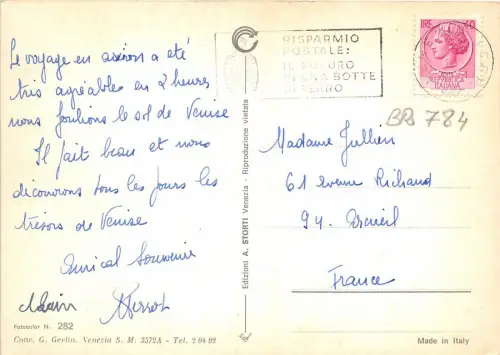 Le voyage en avion a été
très agréables en 2 heures
nous foulions le sol de Venise
Il fait beau et nous
découvrons tous les jours les
trésors de Venise
Amical Souvenir
Alain
RISPARMIO
POSTALE:
IL FUTURO
IN UNA BOTTE
DI FERRO
LIRE 90
ITALIANA
BPS 784
Madame Jullien
61 avenue Richaud
94. Arcueil
France
Edizioni A. STORTI Venezia - Riproduzione vietata
Fotocolor N. 282
Conc. G. Gerlin. Venezia S. M. 3572A - Tel. 2 04 92
Made in Italy